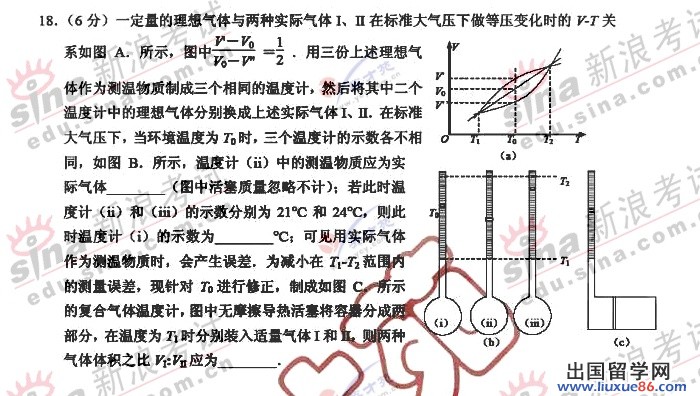 18.（6 分）一定量的理想气体与两种实际气体 I、II 在标准大气压下做等压变化时的 V-T 关
系如图 A．所示，图中 V'－V₀ / V₀－V" ＝ 1/2 ．用三份上述理想气
体作为测温物质制成三个相同的温度计，然后将其中二个
温度计中的理想气体分别换成上述实际气体 I、II．在标准
大气压下，当环境温度为 T₀ 时，三个温度计的示数各不相
同，如图 B．所示，温度计（ii）中的测温物质应为实
际气体________（图中活塞质量忽略不计）；若此时温
度计（ii）和（iii）的示数分别为 21℃ 和 24℃，则此
时温度计（i）的示数为________℃；可见用实际气体
作为测温物质时，会产生误差．为减小在 T₁-T₂ 范围内
的测量误差，现针对 T₀ 进行修正，制成如图 C．所示
的复合气体温度计，图中无摩擦导热活塞将容器分成两
部分，在温度为 T₁ 时分别装入适量气体 I 和 II，则两种
气体体积之比 VI:VII 应为________．
V
V'
V₀
V"
O T₁ T₀ T₂ T
(a)
T₂
T₀
T₁
(i) (ii) (iii)
(b) (c)
新浪考试
sina
edu.sina.com.cn
出国留学网
www.liuxue86.com